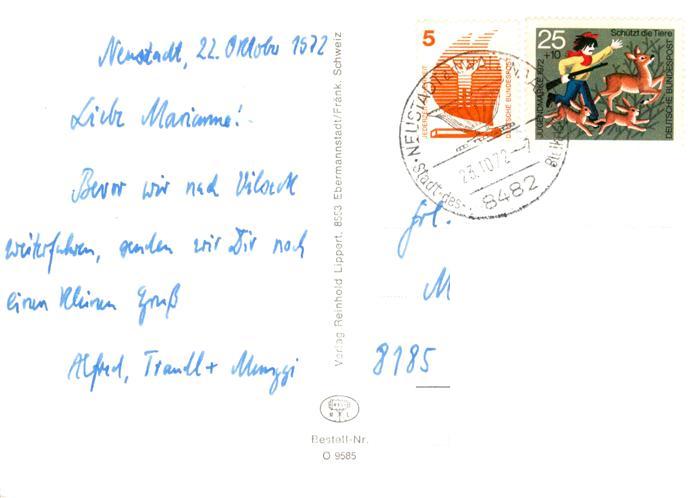 Neustadt, 22. Oktober 1972
Liebe Marianne!
Bevor wir nach Vilseck
weiterfahren, senden wir Dir noch
einen kleinen Gruß
Alfred, Traudl + Munggi
Verlag Reinhold Lippert, 8553 Ebermannstadt/Fränk. Schweiz
Bestell-Nr.
O 9585
5
DEUTSCHE BUNDESPOST
25
+10
Schützt die Tiere
JUGENDMARKE 1972
DEUTSCHE BUNDESPOST
NEUSTADT
23.10.72-7
8482
Stadt-des-
Frl.
M
8185